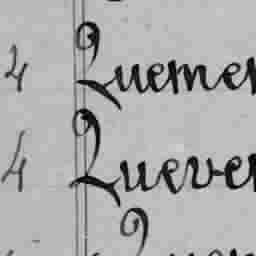 4 Quemer
4 Quever